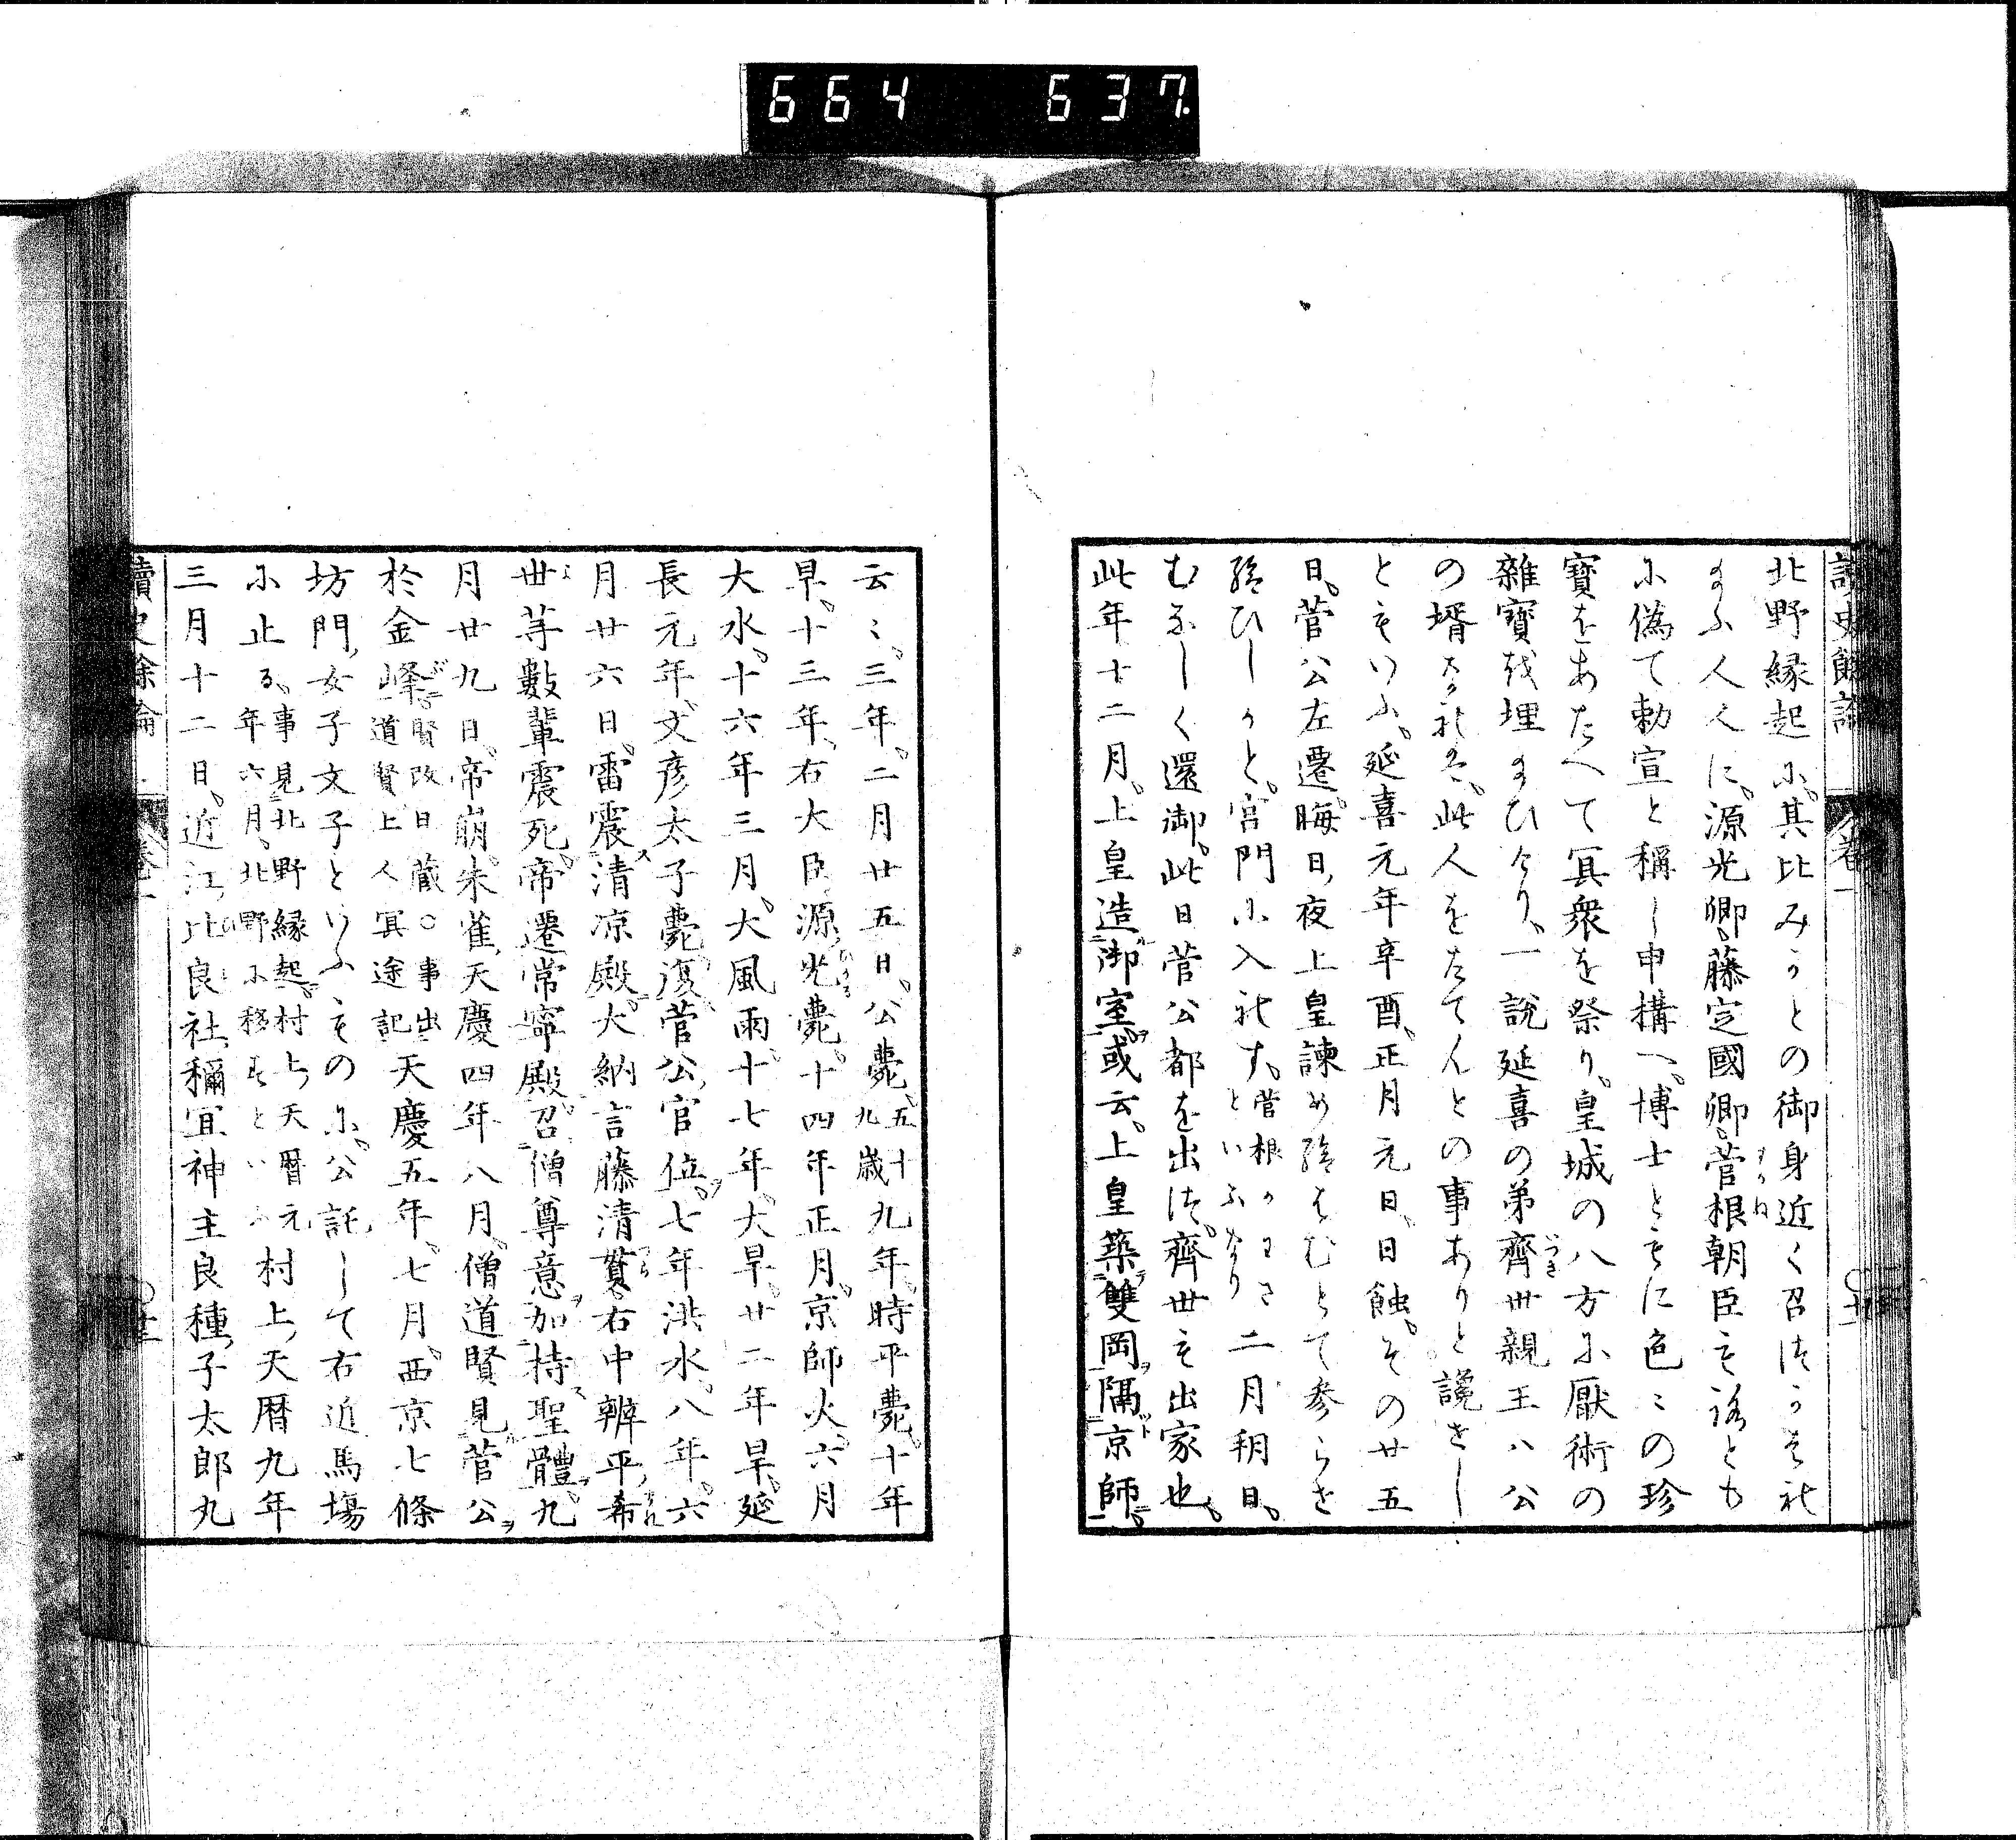 664 637
讀史餘論 卷一
北野縁起に、其比みかとの御身近く召つかそれ
給ふ人人に、源光卿、藤定國卿、菅根朝臣も詔とも
に偽て勅宣と稱し申構へ、博士ともに色〻の珍
寶をあたへて冥衆を祭り、皇城の八方に厭術の
雜寶を埋給ひけり、一説延喜の弟齊世親王ハ公
の壻なれは、此人をたてんとの事ありと讒せし
ともいふ、延喜元年辛酉、正月元日、日蝕、その廿五
日、菅公左遷、晦日、夜上皇諫め給はむとて参らせ
給ひしかと、宮門に入れす、菅根かわさ
といふなり
二月朔日、
むなしく還御、此日菅公都を出つ、齊世も出家也、
此年十二月、上皇造御室、或云、上皇築雙岡隔京師、
云〻、三年、二月廿五日、公薨、五十
九歳
九年、時平薨、十年
旱、十三年、右大臣源光薨、十四年正月、京師火、六月
大水、十六年三月、大風雨、十七年、大旱、廿二年旱、延
長元年、文彦太子薨、復菅公官位、七年洪水、八年、六
月廿六日、雷震清凉殿、大納言藤清貫、右中辨平希
世等數輩震死、帝遷常寧殿、召僧尊意加持聖體、九
月廿九日、帝崩、朱雀天慶四年八月、僧道賢見菅公
於金峰、賢改日藏○事出
道賢上人冥途記
天慶五年、七月、西京七條
坊門、女子文子といふものに、公託して右近馬場
に止る、事見北野縁起、村上天暦元
年六月、北野に移すといふ
村上天暦九年
三月十二日、近江比良社、禰宜神主良種、子太郎丸
讀史餘論 卷一